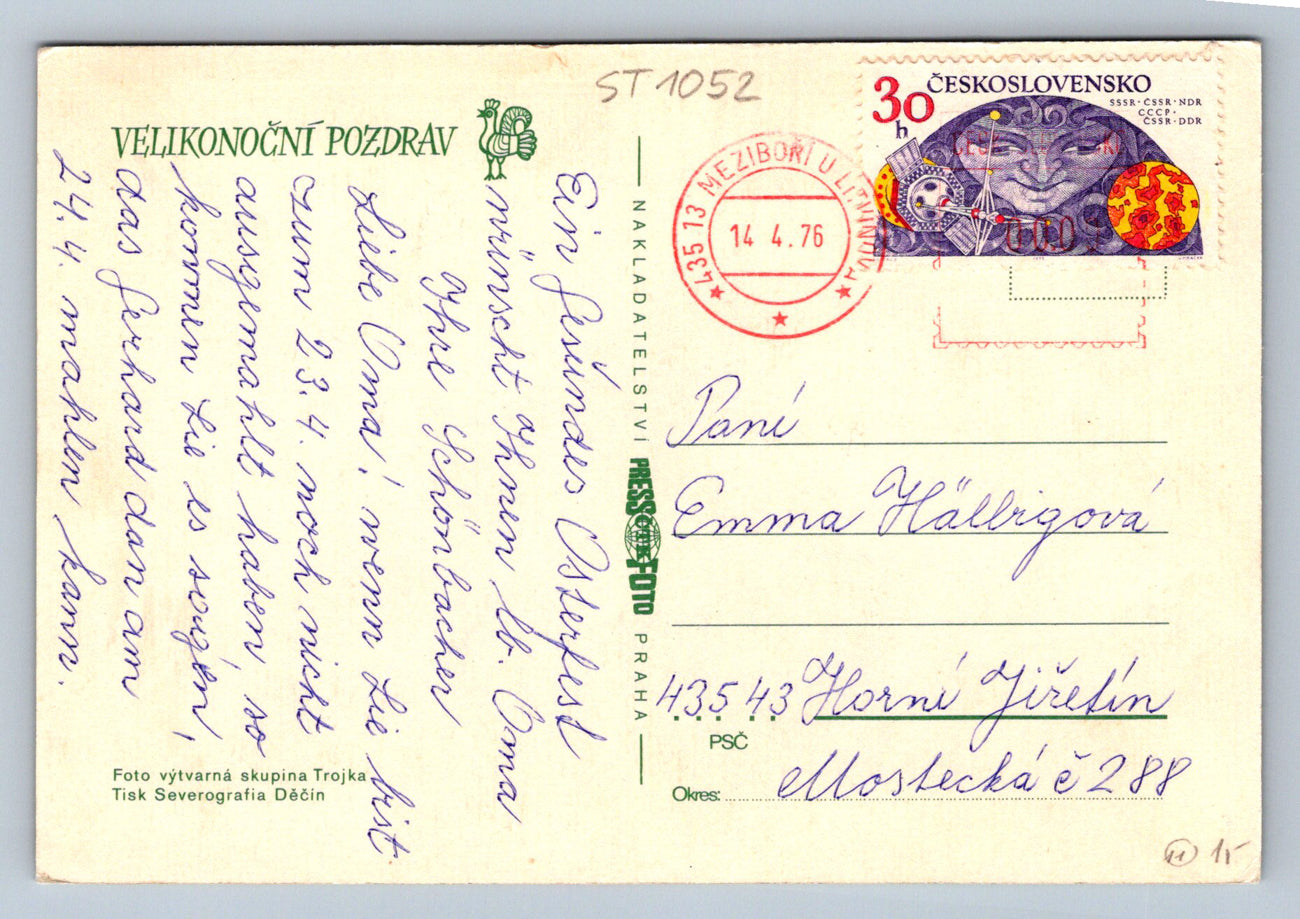 ST 1052
VELIKONOČNÍ POZDRAV
Ein gesúndes Osterfest
wünscht Ihnen lb. Oma
Ihre Schönbacher
Liebe Oma! wenn Sie bist
zum 23. 4. noch nicht
ausgemahlt haben, so
kommen Sie es sagen,
das Gerhard dan am
24. 4. mahlen kann.
Foto výtvarná skupina Trojka
Tisk Severografia Děčín
NAKLADATELSTVÍ PRESSFOTO PRAHA
ČTK
30 h
ČESKOSLOVENSKO
SSSR · ČSSR · NDR
СССР ·
ČSSR · DDR
435 13 MEZIBOŘÍ U LITVÍNOVA
14 4. 76
Paní
Emma Hälbigová
435 43 Horní Jiřetín
PSČ
Mostecká č 288
Okres:
11 15